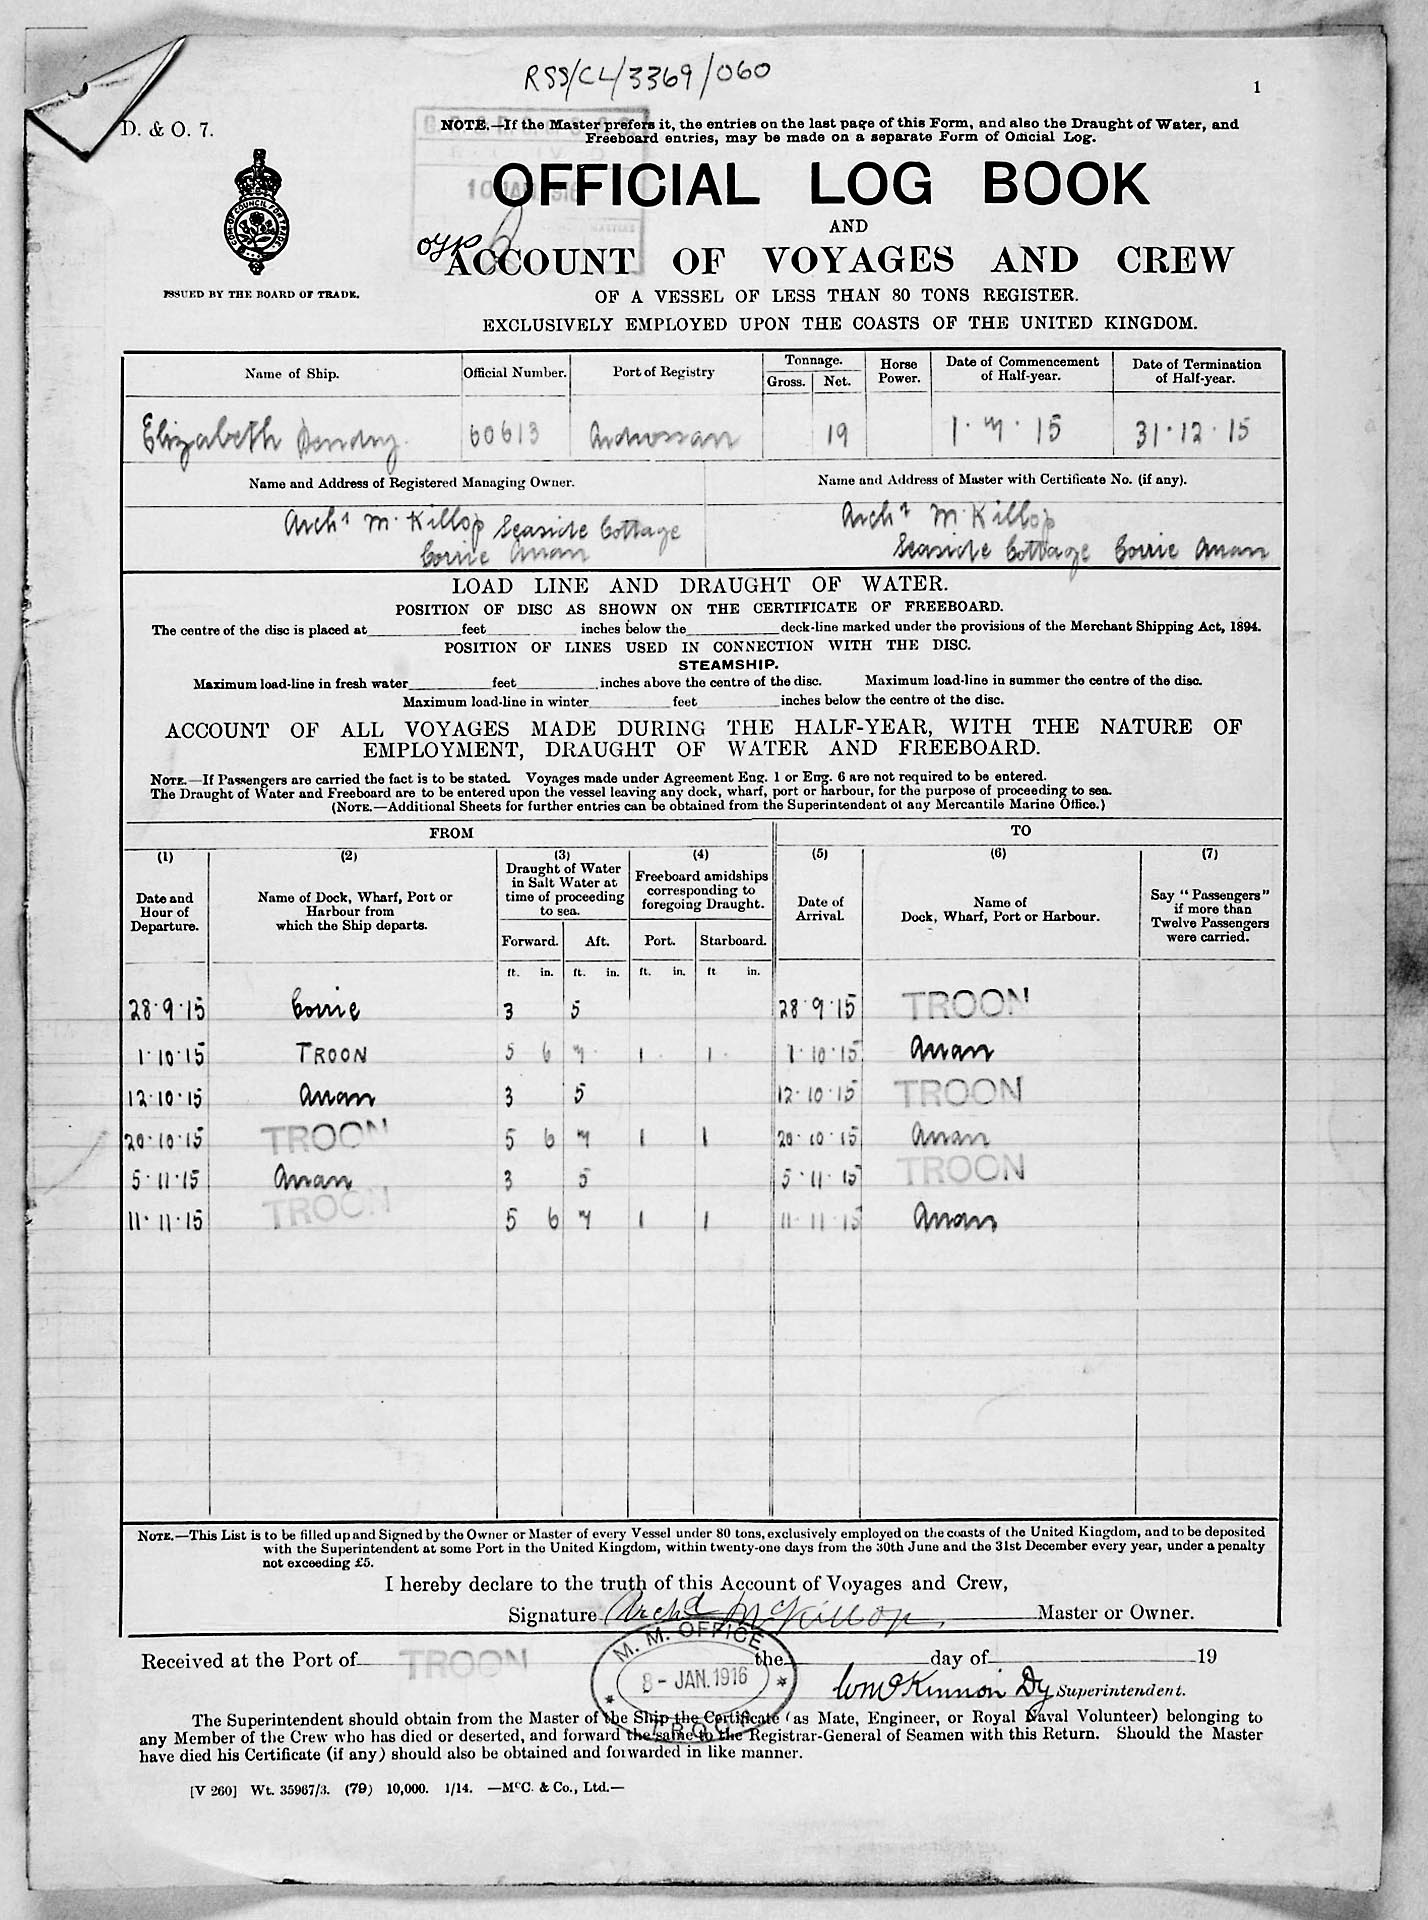 RSS/CL/3369/060
1
D. & O. 7.
NOTE.—If the Master prefers it, the entries on the last page of this Form, and also the Draught of Water, and
Freeboard entries, may be made on a separate Form of Official Log.
10 JAN 1916
OFFICIAL LOG BOOK
AND
ACCOUNT OF VOYAGES AND CREW
ISSUED BY THE BOARD OF TRADE.
OF A VESSEL OF LESS THAN 80 TONS REGISTER.
EXCLUSIVELY EMPLOYED UPON THE COASTS OF THE UNITED KINGDOM.
Name of Ship. Official Number. Port of Registry Tonnage. Gross. Net. Horse Power. Date of Commencement of Half-year. Date of Termination of Half-year.
Elizabeth 60613 Ardrossan 19 1·7·15 31·12·15
Name and Address of Registered Managing Owner. Name and Address of Master with Certificate No. (if any).
Archd McKillop Seaside Cottage Archd McKillop
Corrie Arran Seaside Cottage Corrie Arran
LOAD LINE AND DRAUGHT OF WATER.
POSITION OF DISC AS SHOWN ON THE CERTIFICATE OF FREEBOARD.
The centre of the disc is placed at feet inches below the deck-line marked under the provisions of the Merchant Shipping Act, 1894.
POSITION OF LINES USED IN CONNECTION WITH THE DISC.
STEAMSHIP.
Maximum load-line in fresh water feet inches above the centre of the disc. Maximum load-line in summer the centre of the disc.
Maximum load-line in winter feet inches below the centre of the disc.
ACCOUNT OF ALL VOYAGES MADE DURING THE HALF-YEAR, WITH THE NATURE OF
EMPLOYMENT, DRAUGHT OF WATER AND FREEBOARD.
NOTE.—If Passengers are carried the fact is to be stated. Voyages made under Agreement Eng. 1 or Eng. 6 are not required to be entered.
The Draught of Water and Freeboard are to be entered upon the vessel leaving any dock, wharf, port or harbour, for the purpose of proceeding to sea.
(NOTE.—Additional Sheets for further entries can be obtained from the Superintendent of any Mercantile Marine Office.)
FROM TO
(1) (2) (3) (4) (5) (6) (7)
Date and Hour of Departure. Name of Dock, Wharf, Port or Harbour from which the Ship departs. Draught of Water in Salt Water at time of proceeding to sea. Freeboard amidships corresponding to foregoing Draught. Date of Arrival. Name of Dock, Wharf, Port or Harbour. Say "Passengers" if more than Twelve Passengers were carried.
Forward. Aft. Port. Starboard.
ft. in. ft. in. ft. in. ft in.
28·9·15 Corrie 3 5 28·9·15 TROON
1·10·15 TROON 5 6 7 1 1 1·10·15 Arran
12·10·15 Arran 3 5 12·10·15 TROON
20·10·15 TROON 5 6 7 1 1 20·10·15 Arran
5·11·15 Arran 3 5 5·11·15 TROON
11·11·15 TROON 5 6 7 1 1 11·11·15 Arran
NOTE.—This List is to be filled up and Signed by the Owner or Master of every Vessel under 80 tons, exclusively employed on the coasts of the United Kingdom, and to be deposited
with the Superintendent at some Port in the United Kingdom, within twenty-one days from the 30th June and the 31st December every year, under a penalty
not exceeding £5.
I hereby declare to the truth of this Account of Voyages and Crew,
Signature Archd McKillop Master or Owner.
Received at the Port of TROON the day of 19
M. M. OFFICE
8 - JAN. 1916
TROON
Wm McKinnon Dy Superintendent.
The Superintendent should obtain from the Master of the Ship the Certificate (as Mate, Engineer, or Royal Naval Volunteer) belonging to
any Member of the Crew who has died or deserted, and forward the same to the Registrar-General of Seamen with this Return. Should the Master
have died his Certificate (if any) should also be obtained and forwarded in like manner.
[V 260] Wt. 35967/3. (79) 10,000. 1/14. —McC. & Co., Ltd.—